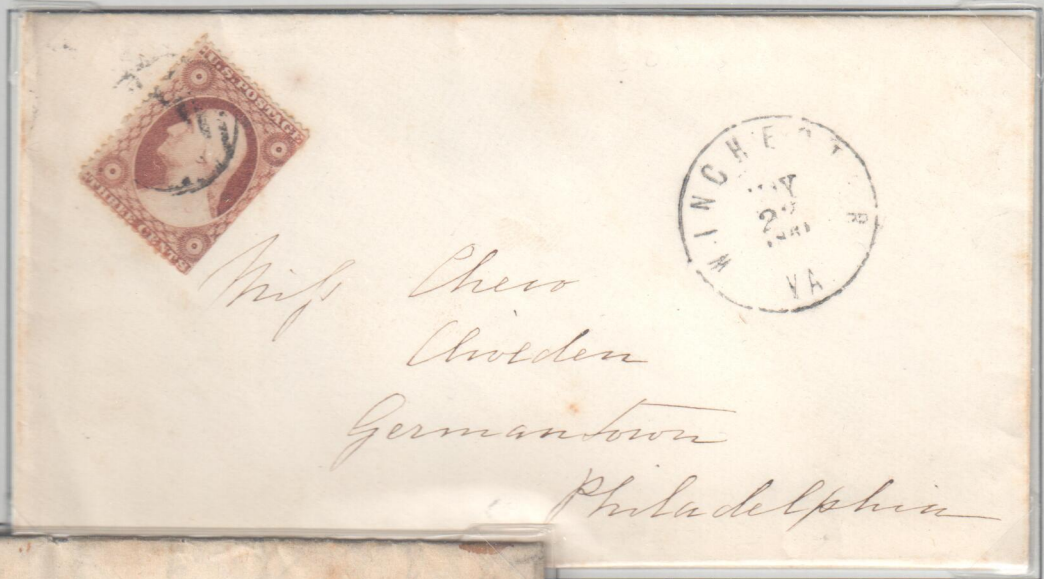 U.S. POSTAGE
THREE CENTS
WINCHESTER
VA
Miss Chew
Cliveden
Germantown
Philadelphia